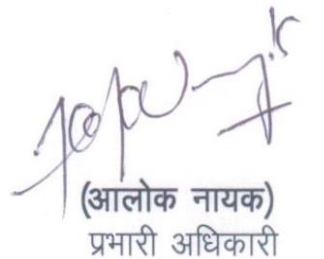 (आलोक नायक)
प्रभारी अधिकारी